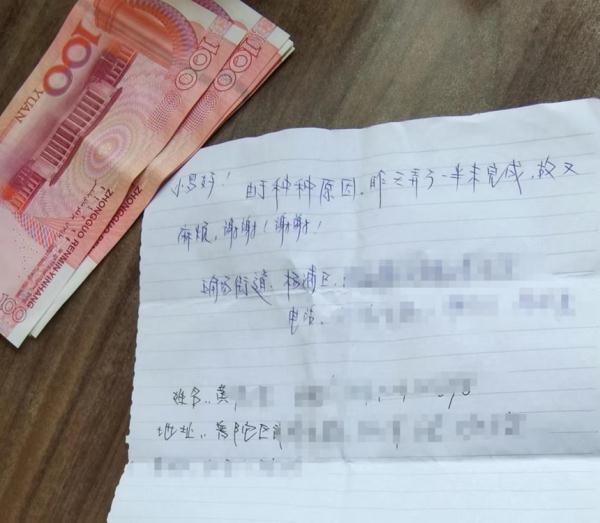 100
YUAN
ZHONGGUO RENMIN YINHANG
100
100
100
小吴好! 由于种种原因, 昨天弄了一半未完成, 故又
麻烦, 谢谢! 谢谢!
街道: 杨浦区:
电话:
姓名: 黄
地址: 普陀区